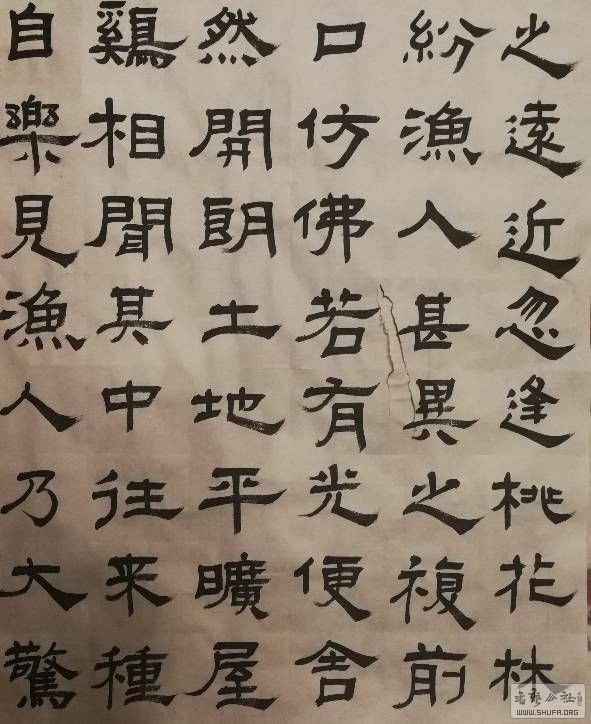 之遠近忽逢桃花林
紛漁人甚異之複前
口仿佛若有光便舍
然開朗土地平曠屋
鷄相聞其中往来種
自樂見漁人乃大驚
WWW.SHUFA.ORG